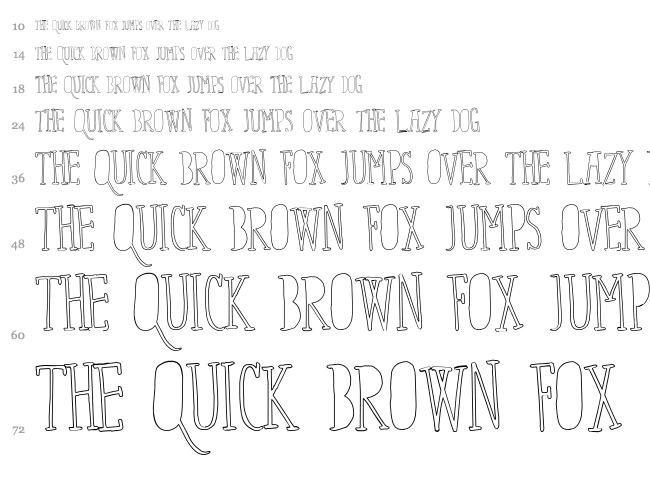 10 THE QUICK BROWN FOX JUMPS OVER THE LAZY DOG
14 THE QUICK BROWN FOX JUMPS OVER THE LAZY DOG
18 THE QUICK BROWN FOX JUMPS OVER THE LAZY DOG
24 THE QUICK BROWN FOX JUMPS OVER THE LAZY DOG
36 THE QUICK BROWN FOX JUMPS OVER THE LAZY
48 THE QUICK BROWN FOX JUMPS OVER
60 THE QUICK BROWN FOX JUMP
72 THE QUICK BROWN FOX